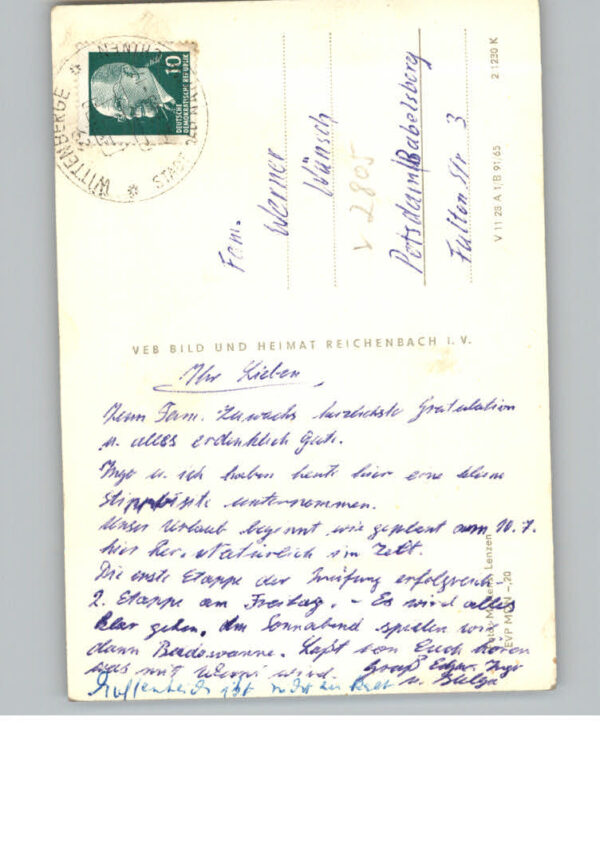 WITTENBERGE
10
DEUTSCHE
DEMOKRATISCHE REPUBLIK
Fam.
Werner
Wünsch
v 2805
Potsdam/Babelsberg
Fulton Str 3
V 11 28 A 1/B 91/65 2 1230 K
VEB BILD UND HEIMAT REICHENBACH I. V.
Ihr Lieben
Zum Fam. Zuwachs herzlichste Gratulation
u. alles erdenklich Gute.
Ingo u. ich haben heute hier eine kleine
Stippvisite unternommen.
Unser Urlaub beginnt wie geplant am 10.7.
hier . Natürlich im Zelt.
Die erste Etappe der Prüfung erfolgreich
2. Etappe am Freitag. – Es wird alles
klar gehen. Am Sonnabend spielen wir
dann Badewanne. Laßt von Euch hören
was mit wird. Gruß Ingo
u. Helga
Lenzen
EVP MDN –,20